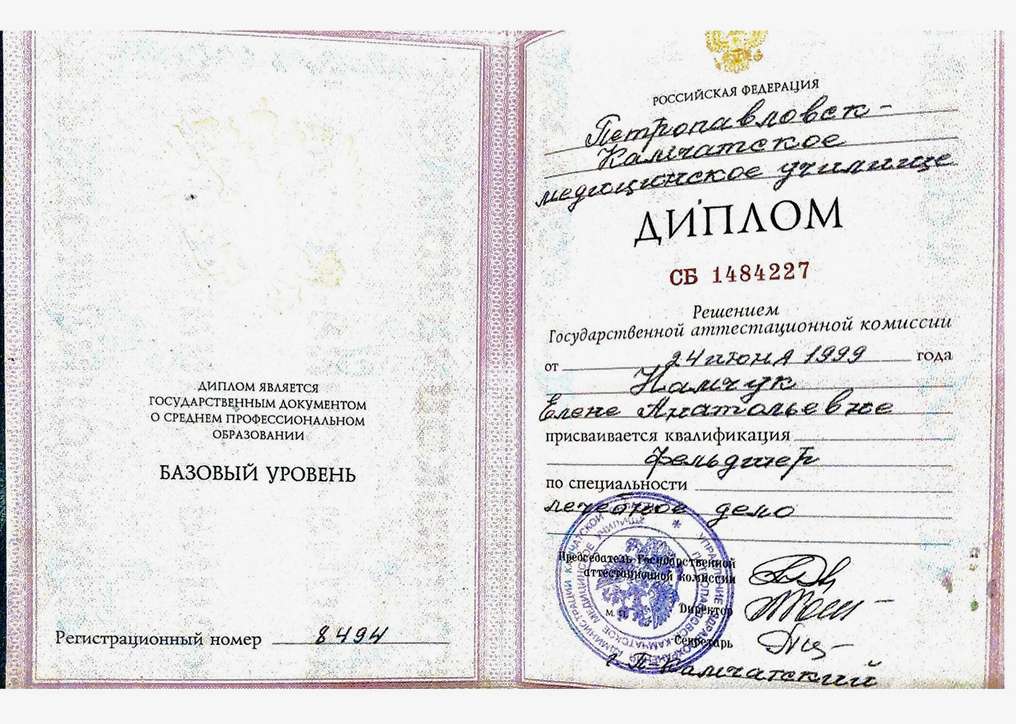 ДИПЛОМ ЯВЛЯЕТСЯ
ГОСУДАРСТВЕННЫМ ДОКУМЕНТОМ
О СРЕДНЕМ ПРОФЕССИОНАЛЬНОМ
ОБРАЗОВАНИИ
БАЗОВЫЙ УРОВЕНЬ
Регистрационный номер 8494
РОССИЙСКАЯ ФЕДЕРАЦИЯ
Петропавловск-
Камчатское
медицинское училище
ДИПЛОМ
СБ 1484227
Решением
Государственной аттестационной комиссии
от 24 июня 1999 года
Намчук
Елене Анатольевне
присваивается квалификация
фельдшер
по специальности
лечебное дело
Председатель Государственной
аттестационной комиссии
М. П. Директор
Секретарь
г. П-Камчатский